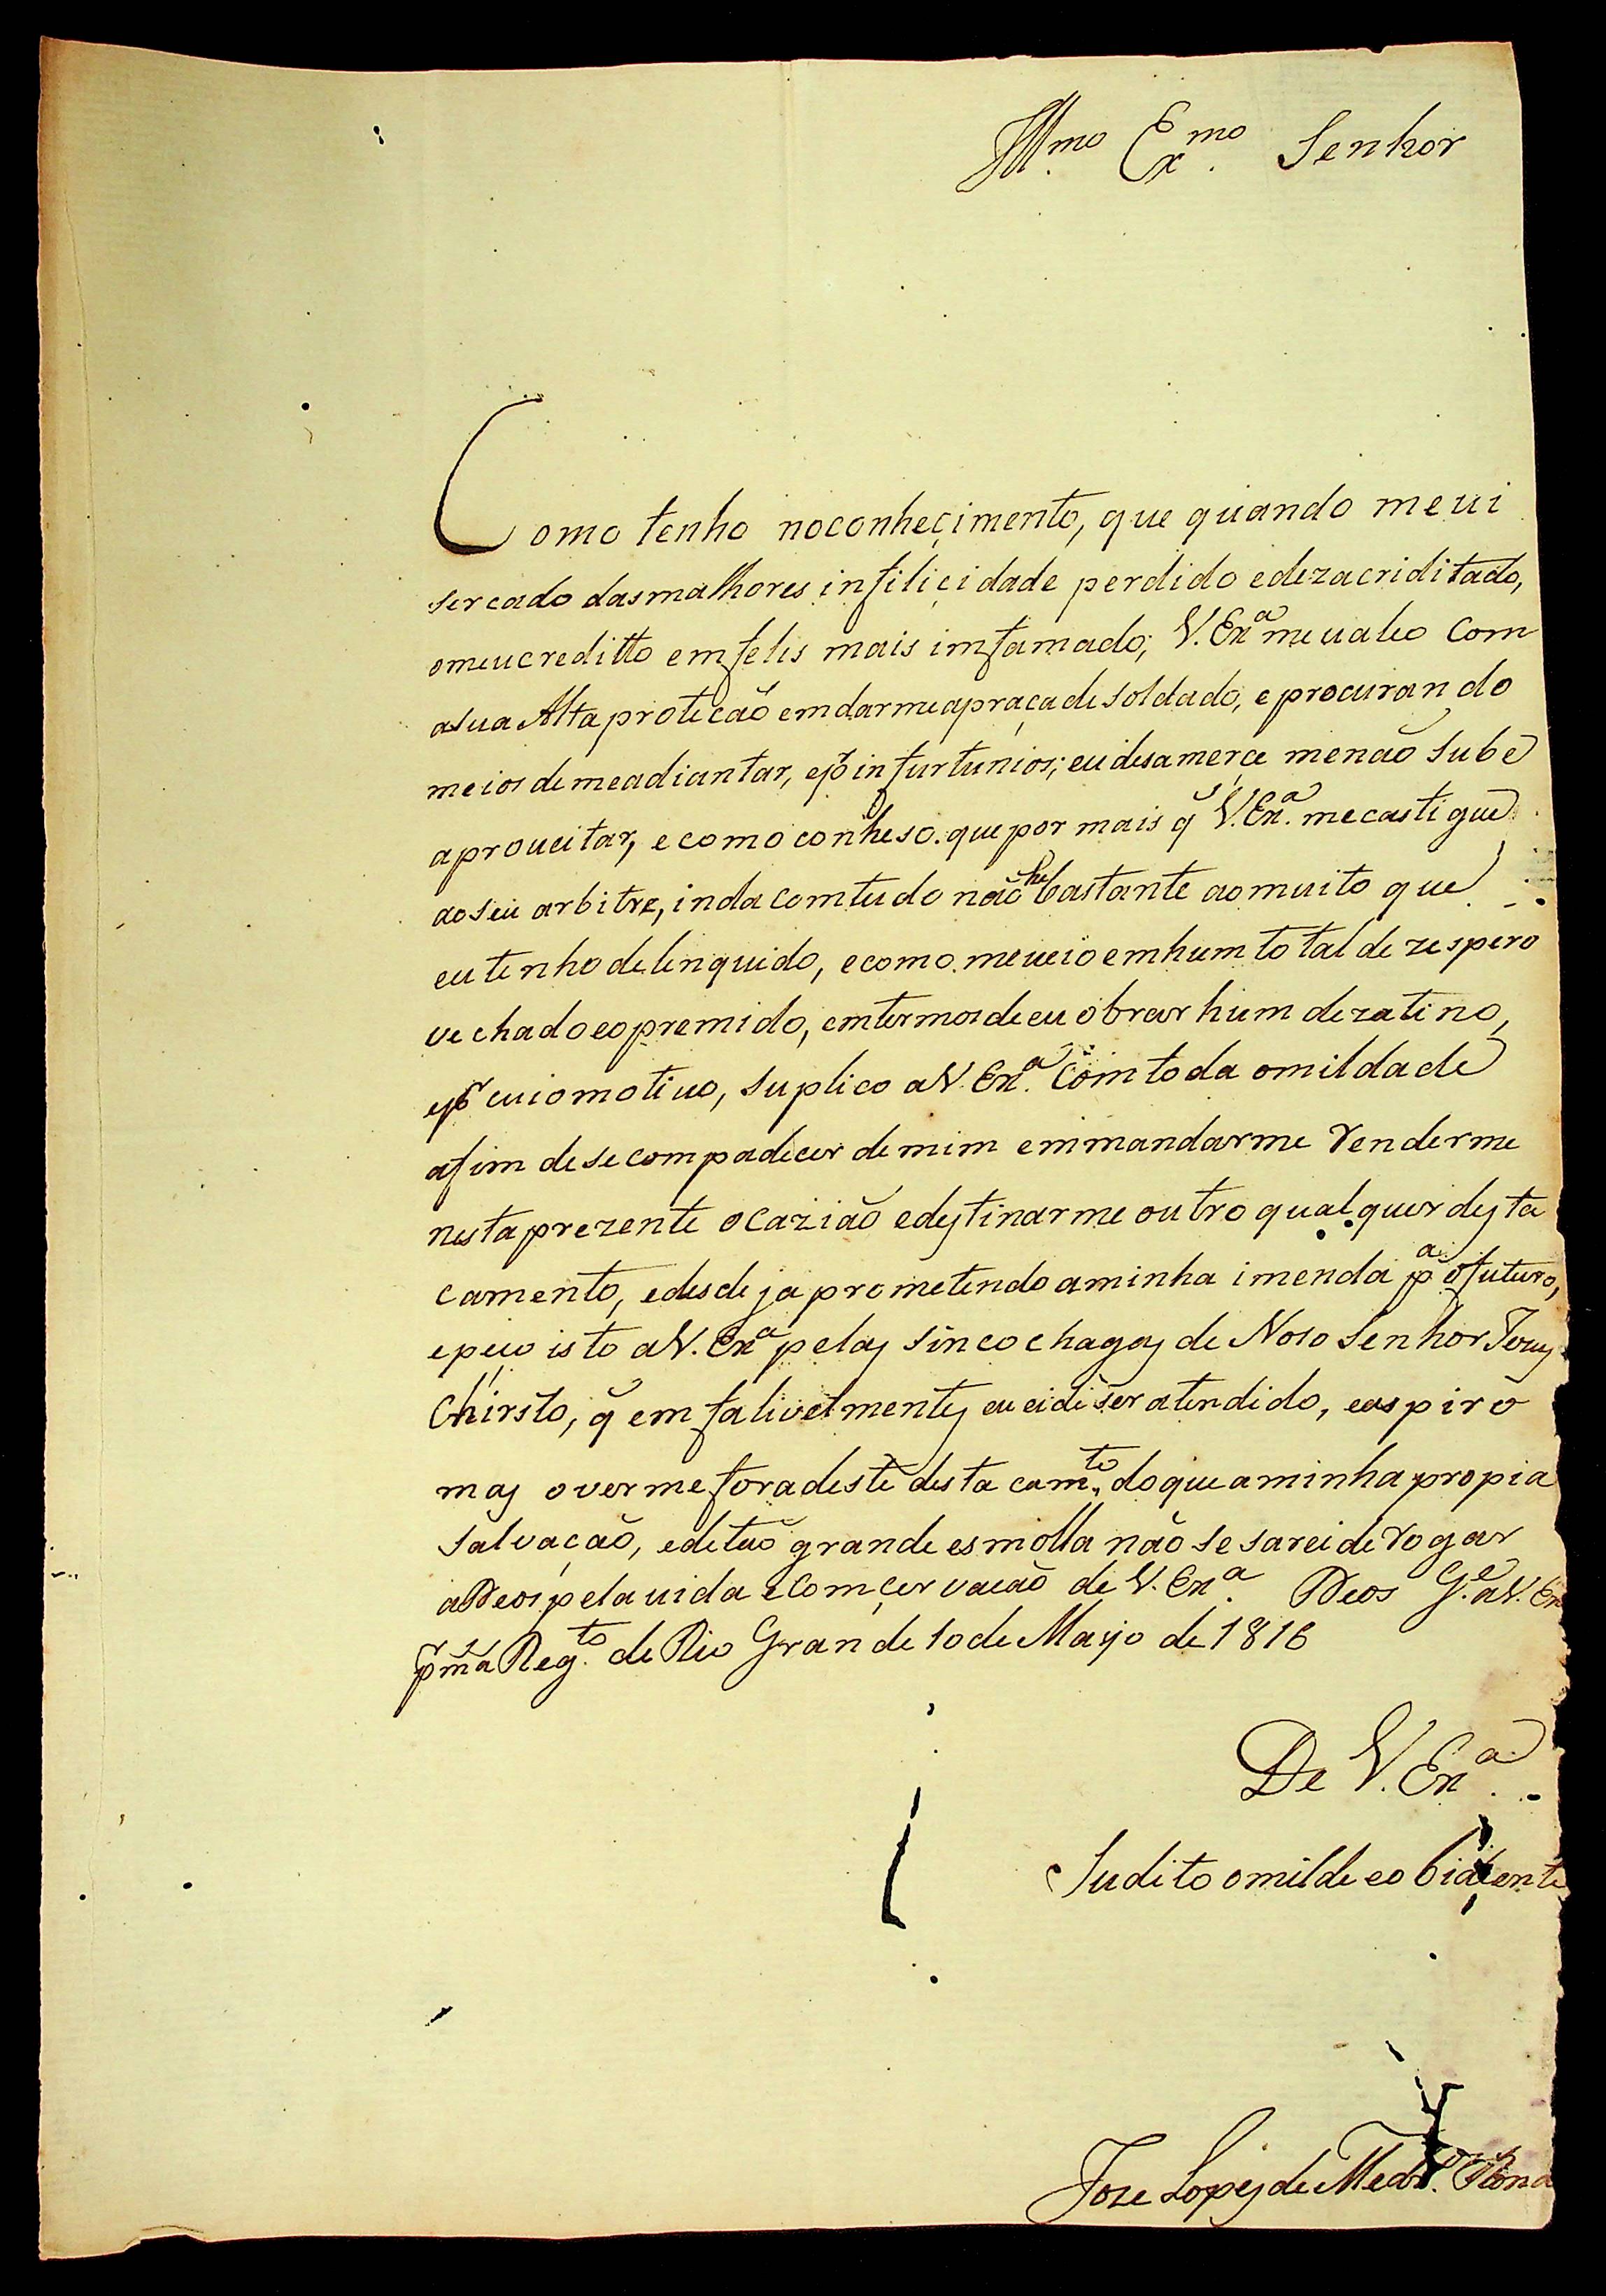 Illmo. Exmo. Senhor
Como tenho noconheçimento, que quando meui
sercado dasmalhores infiliçidade perdido edezacriditado,
omeucreditto emfelis mais imfamado; V. Exa meualeo Com
asua Alta proteçaõ emdarmeapraçadesoldado, e procurando
meios demeadiantar, epr infurtunios; eudesamerçe menaõ Sube
aproueitar, e como conheso. que por mais q̃ V. Exa. mecastigue
aoseu arbitre, inda comtudo naõ he bastante aomuito que
eu tenho delinquido, ecomo. meueio emhum total dezespero
vechado eopremido, emtermosdeeu obrar hum dezatino,
epr cuiomotiuo, suplico aV. Exa. Com toda omildade
afim desecompadecer demim emmandarme renderme
nestaprezente ocaziaõ edestinarme outro qualquer desta
camento, edesde ja prometendo aminha imenda pa ofuturo,
epeço isto aV. Exa pelas sinco chagas de Noso Senhor Jezus
Chirsto, q̃ emfalivelmentes eu eide ser atendido, easpiro
mas overme foradeste destacamto. doque aminha propia
salvaçaõ, edetaõ grande esmolla naõ sesarei de rogar
aDeos pela uida eComçervacaõ de V. Exa. Deos Ge. aV. Ex
Regto. de Rio Grande 10 de Mayo de 1816
De V. Exa.
Sudito omilde eobidente
Joze Lopes de